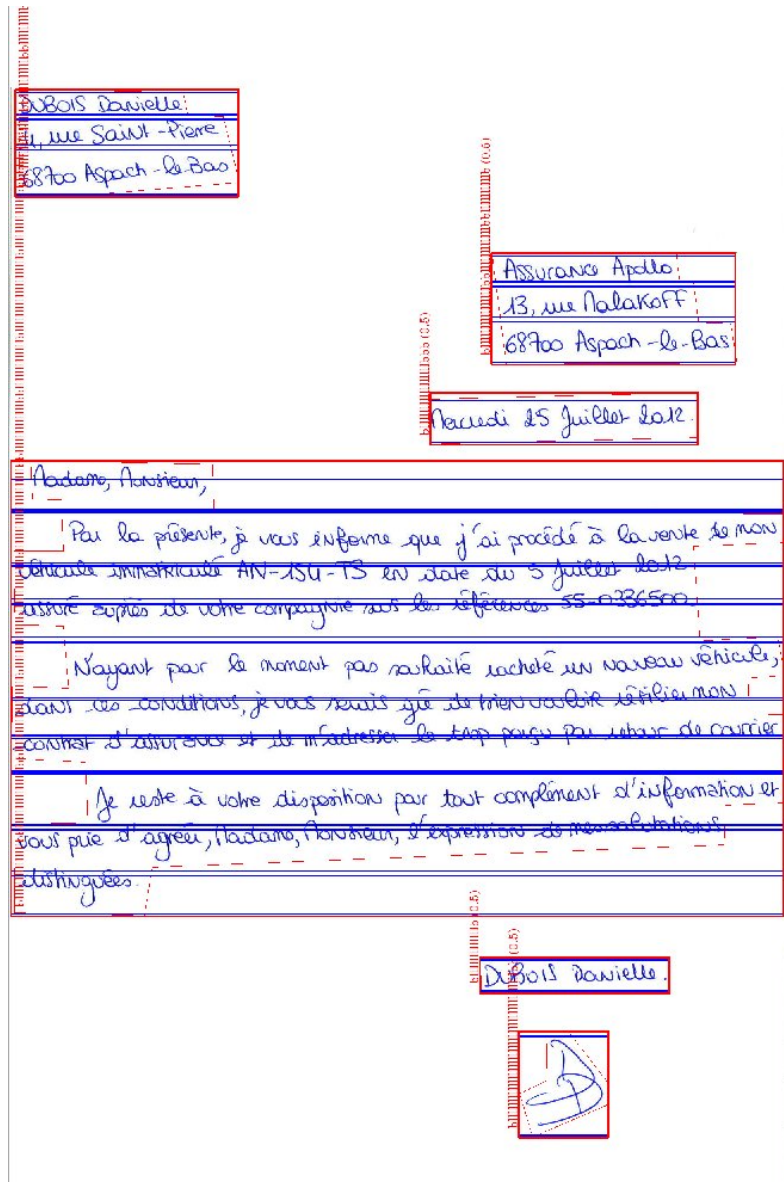 DUBOIS Danielle
4, rue Saint-Pierre
68700 Aspach-le-Bas
Assurance Apollo
13, rue Malakoff
68700 Aspach-le-Bas
Mercredi 25 Juillet 2012.
Madame, Monsieur,
Par la présente, je vous informe que j'ai procédé à la vente de mon
véhicule immatriculé AN-154-TS en date du 5 juillet 2012
assuré auprès de votre compagnie sus les références 55-0336500.
N'ayant pour le moment pas souhaité racheté un nouveau véhicule,
dans ces conditions, je vous serais gré de bien vouloir résilier mon
contrat d'assurance et de m'adresser le trop perçu par retour de courrier
Je reste à votre disposition par tout complément d'information et
vous prie d'agréer, Madame, Monsieur, l'expression de mes salutations
distinguées.
DUBOIS Danielle.